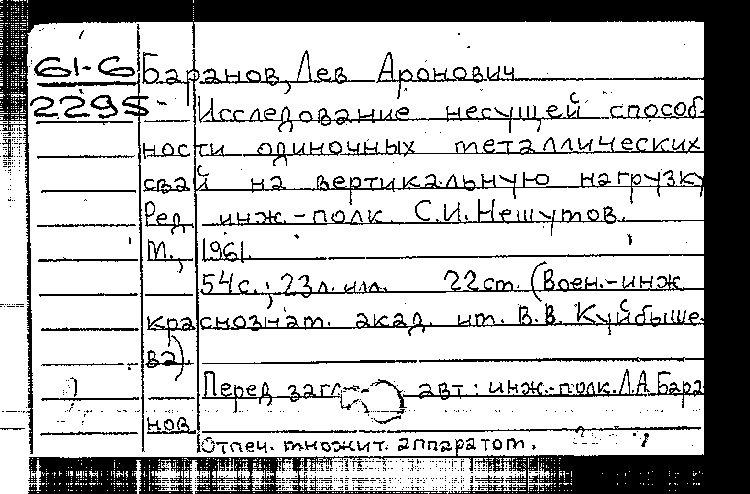 61-6 Баранов, Лев Аронович
2295 Исследование несущей способ-
ности одиночных металлических
свай на вертикальную нагрузку
Ред. инж.-полк. С.И. Нешутов.
М., 1961.
54 с.; 23 л. илл. 22 см. (Воен.-инж
краснознам. акад. им. В.В. Куйбыше-
ва).
Перед загл. авт.: инж.-полк. Л.А. Бара-
нов
Отпеч. множит. аппаратом.